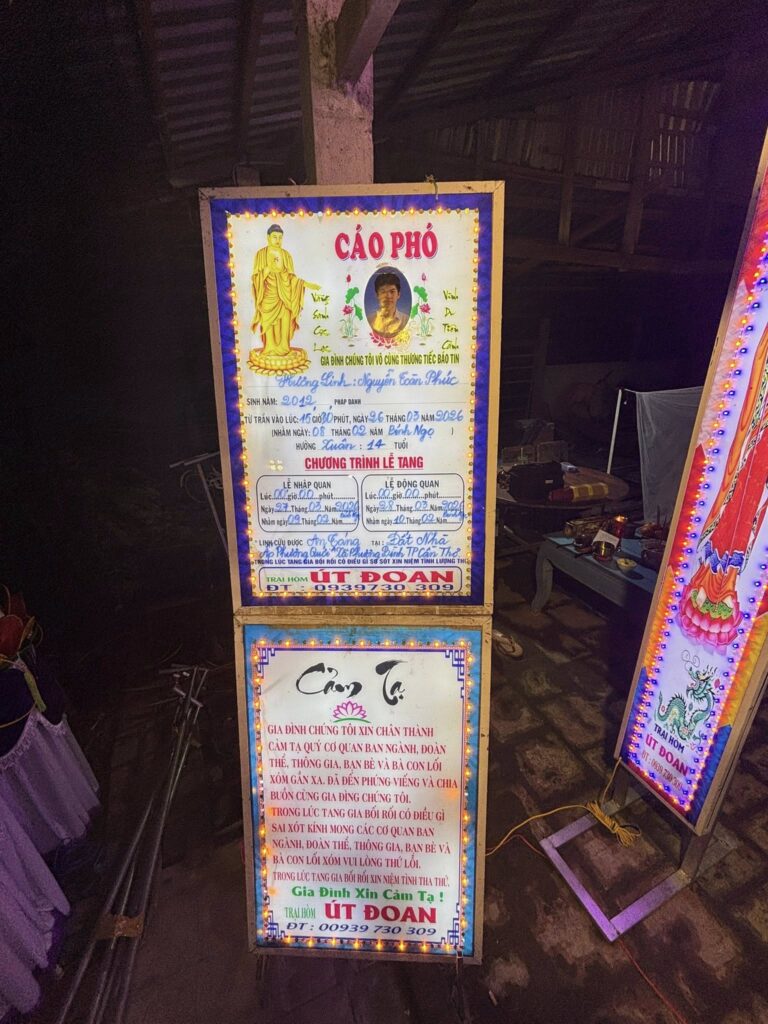 CÁO PHÓ
Vãng
Sanh
Cực
Lạc
Vĩnh
Du
Tiên
Cảnh
GIA ĐÌNH CHÚNG TÔI VÔ CÙNG THƯƠNG TIẾC BÁO TIN
Hương Linh : Nguyễn Toàn Phúc
SINH NĂM: 2012, PHÁP DANH
TỪ TRẦN VÀO LÚC: 15 GIỜ 30 PHÚT, NGÀY 26 THÁNG 03 NĂM 2026
(NHẰM NGÀY: 08 THÁNG 02 NĂM Bính Ngọ )
HƯỞNG Xuân : 14 TUỔI
CHƯƠNG TRÌNH LỄ TANG
LỄ NHẬP QUAN
Lúc 00 giờ 00 phút
Ngày 27 Tháng 03 Năm 2026
Nhằm ngày 09 Tháng 02 Năm
LỄ ĐỘNG QUAN
Lúc 00 giờ 00 phút
Ngày 28 Tháng 03 Năm 2026
Nhằm ngày 10 Tháng 02 Năm
LINH CỬU ĐƯỢC An Táng TẠI : Đất Nhà
Ấp Phương Quới Xã Phương Bình TP Cần Thơ
TRONG LÚC TANG GIA BỐI RỐI CÓ ĐIỀU GÌ SƠ SÓT XIN NIỆM TÌNH LƯỢNG THỨ
TRẠI HÒM ÚT ĐOAN
ĐT : 0939730 309
Cảm Tạ
GIA ĐÌNH CHÚNG TÔI XIN CHÂN THÀNH
CẢM TẠ QUÝ CƠ QUAN BAN NGÀNH, ĐOÀN
THỂ, THÔNG GIA, BẠN BÈ VÀ BÀ CON LỐI
XÓM GẦN XA. ĐÃ ĐẾN PHÚNG VIẾNG VÀ CHIA
BUỒN CÙNG GIA ĐÌNG CHÚNG TÔI.
TRONG LÚC TANG GIA BỐI RỐI CÓ ĐIỀU GÌ
SAI XÓT KÍNH MONG CÁC CƠ QUAN BAN
NGÀNH, ĐOÀN THỂ, THÔNG GIA, BẠN BÈ VÀ
BÀ CON LỐI XÓM VUI LÒNG THỨ LỖI.
TRONG LÚC TANG GIA BỐI RỐI XIN NIỆM TÌNH THA THỨ.
Gia Đình Xin Cảm Tạ !
TRẠI HÒM ÚT ĐOAN
ĐT : 00939 730 309
TRẠI HÒM
ÚT ĐOAN
ĐT : 0939 730 309